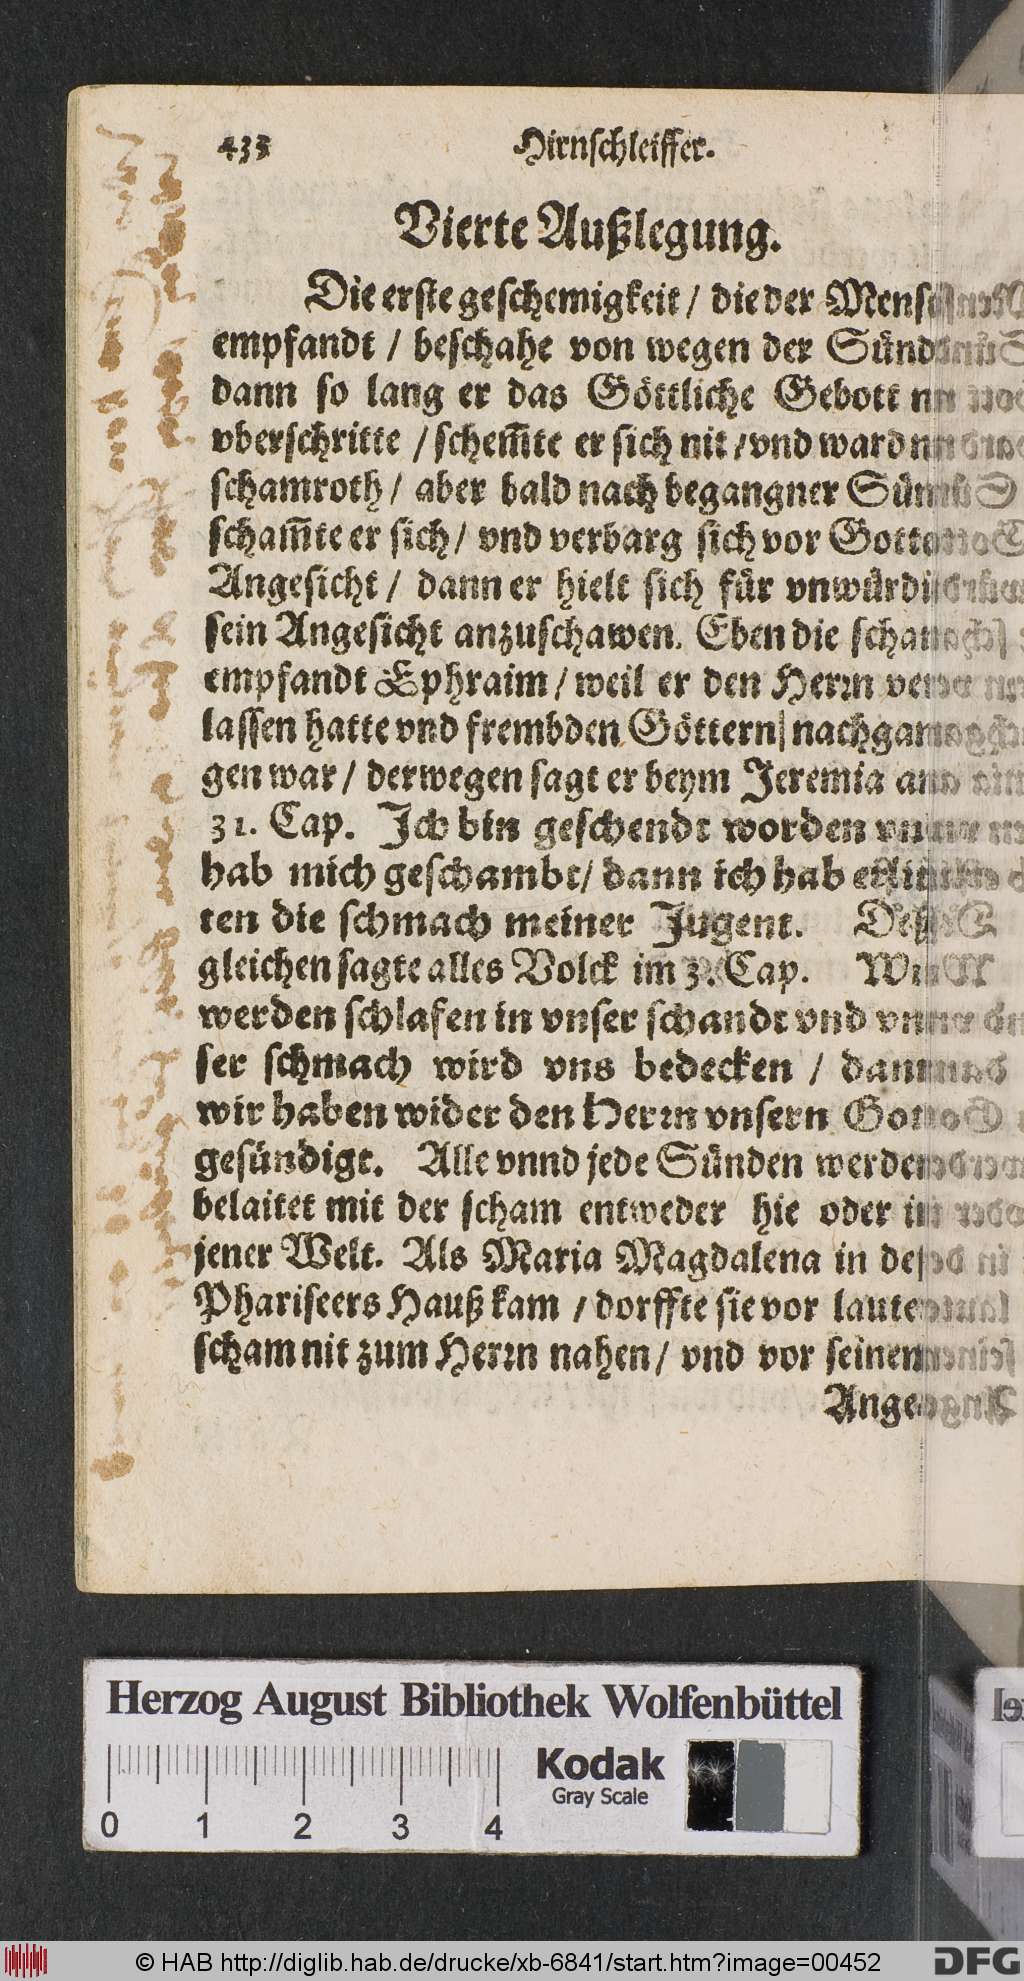 433 Hirnschleiffer.
Vierte Außlegung.
Die erste geschemigkeit / die der Mensch
empfandt / beschahe von wegen der Sünd
dann so lang er das Göttliche Gebott
vberschritte / schem̄te er sich nit / vnd ward
schamroth / aber bald nach begangner
scham̄te er sich / vnd verbarg sich vor Gottes
Angesicht / dann er hielt sich für vnwürdig
sein Angesicht anzuschawen. Eben die scham
empfandt Ephraim / weil er den Herrn ver-
lassen hatte vnd frembden Göttern nachgan-
gen war / derwegen sagt er beym Jeremia am
31. Cap. Ich bin geschendt worden
hab mich geschambt / dann ich hab erlit-
ten die schmach meiner Jugent. Deß-
gleichen sagte alles Volck im 3. Cap. Wir
werden schlafen in vnser schandt vnd vn-
ser schmach wird vns bedecken / dann
wir haben wider den Herrn vnsern Gott
gesündigt. Alle vnnd jede Sünden werden
belaitet mit der scham entweder hie oder in
jener Welt. Als Maria Magdalena in deß
Phariseers Hauß kam / dorffte sie vor lauter
scham nit zum Herrn nahen / vnd vor seinem
Ange-
Herzog August Bibliothek Wolfenbüttel
Kodak
Gray Scale
0 1 2 3 4
© HAB http://diglib.hab.de/drucke/xb-6841/start.htm?image=00452
DFG